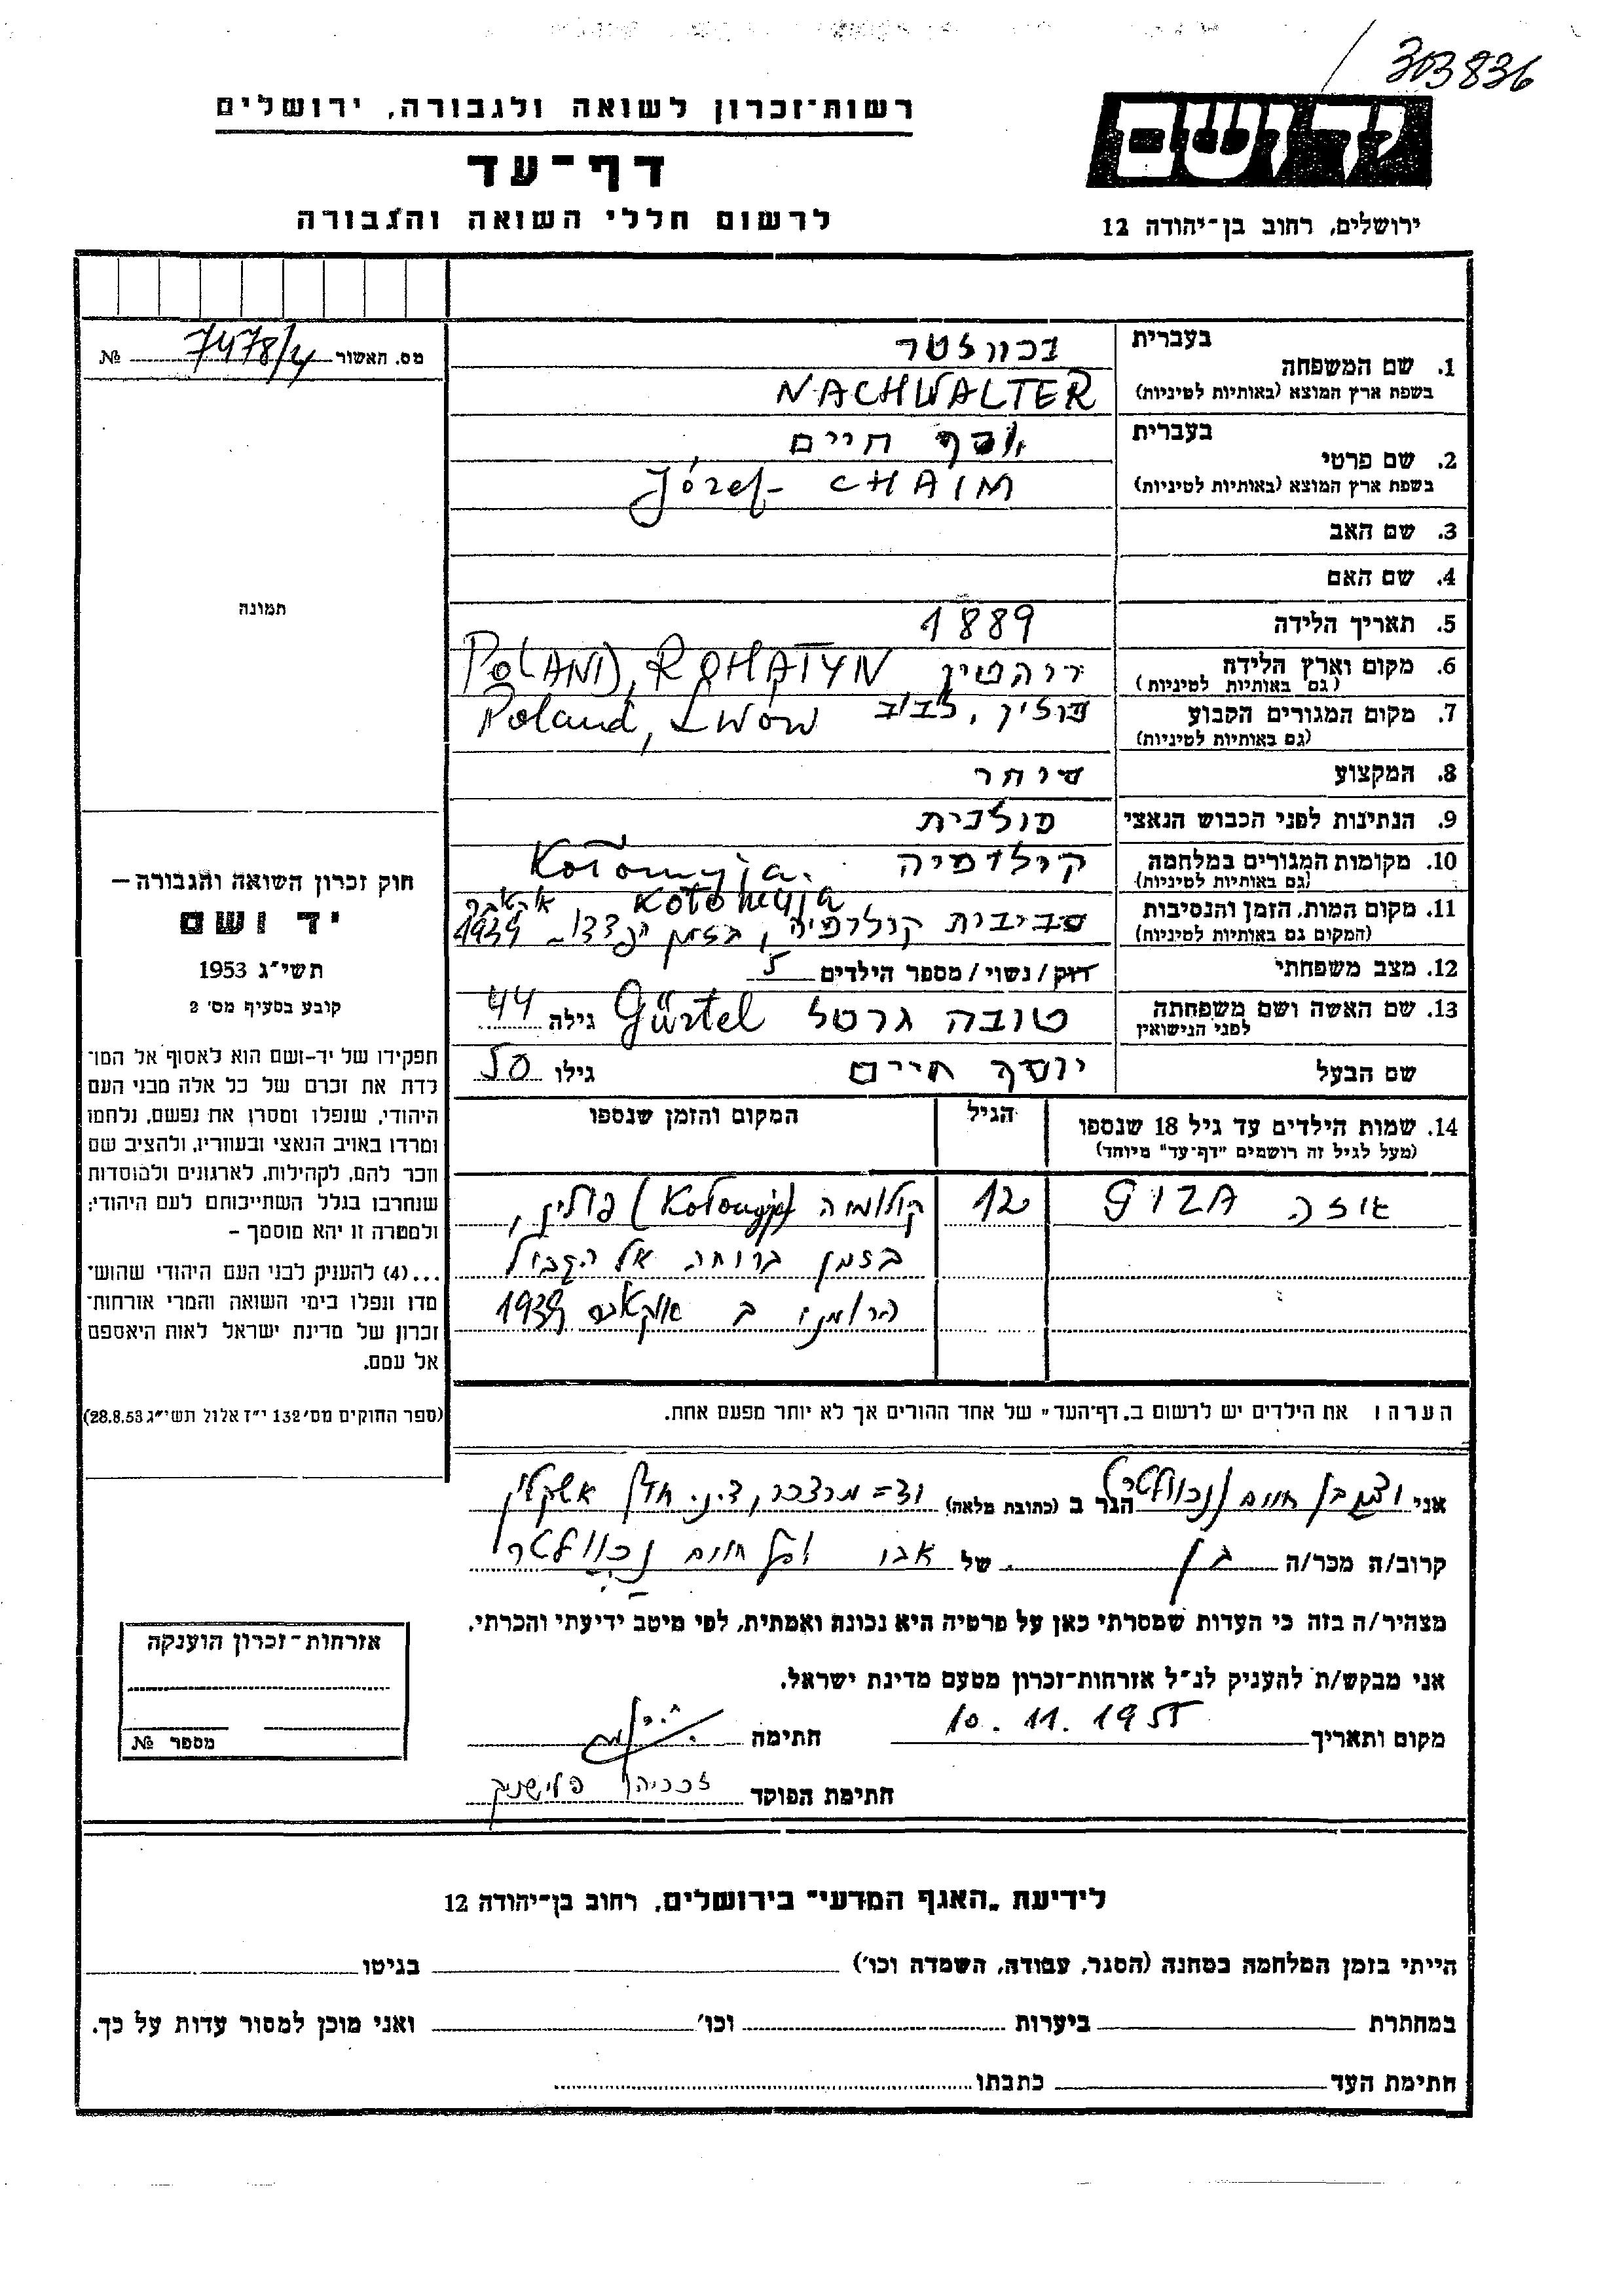 303836
יד ושם
ירושלים, רחוב בן־יהודה 12
רשות־זכרון לשואה ולגבורה, ירושלים
דף־עד
לרשום חללי השואה והגבורה
מס. האשור 7478/4 №
תמונה
בעברית
1. שם המשפחה נכוולטר
בשפת ארץ המוצא (באותיות לטיניות) NACHWALTER
בעברית
2. שם פרטי יוסף חיים
בשפת ארץ המוצא (באותיות לטיניות) Józef- CHAIM
3. שם האב
4. שם האם
5. תאריך הלידה 1889
6. מקום וארץ הלידה רוהטין POLAND, ROHATYN
(גם באותיות לטיניות)
7. מקום המגורים הקבוע פולין, לבוב Poland, Lwów
(גם באותיות לטיניות)
8. המקצוע סוחר
9. הנתינות לפני הכבוש הנאצי פולנית
10. מקומות המגורים במלחמה קולומיה Kołomyja.
(גם באותיות לטיניות)
11. מקום המות, הזמן והנסיבות סביבות קולומיה, בזמן Kołomyja 1939
(המקום גם באותיות לטיניות)
12. מצב משפחתי רווק/נשוי/מספר הילדים 5
13. שם האשה ושם משפחתה טובה גרטל Gürtel גילה 44
לפני הנישואין
שם הבעל יוסף חיים גילו 50
14. שמות הילדים עד גיל 18 שנספו הגיל המקום והזמן שנספו
(מעל לגיל זה רושמים "דף־עד" מיוחד)
גיזה GIZA 12 קולומיה (Kołomyja) פולין,
בזמן בריחה אל הגבול
הרומני ב אוקטובר 1939
הערה: את הילדים יש לרשום ב„דף־העד" של אחד ההורים אך לא יותר מפעם אחת.
חוק זכרון השואה והגבורה –
יד ושם
תשי"ג 1953
קובע בסעיף מס' 2
תפקידו של יד-ושם הוא לאסוף אל המו־
לדת את זכרם של כל אלה מבני העם
היהודי, שנפלו ומסרו את נפשם, נלחמו
ומרדו באויב הנאצי ובעוזריו, ולהציב שם
וזכר להם, לקהילות, לארגונים ולמוסדות
שנחרבו בגלל השתייכותם לעם היהודי;
ולמטרה זו יהא מוסמך –
...(4) להעניק לבני העם היהודי שהוש־
מדו ונפלו בימי השואה והמרי אזרחות־
זכרון של מדינת ישראל לאות היאספם
אל עמם.
(ספר החוקים מס' 132 י"ז אלול תשי"ג 28.8.53)
אני נכוולטר הגר ב (כתובת מלאה) אשקלון
קרוב/ה מכר/ה בן של אבי חיים נכוולטר
מצהיר/ה בזה כי העדות שמסרתי כאן על פרטיה היא נכונה ואמתית, לפי מיטב ידיעתי והכרתי.
אני מבקש/ת להעניק לנ"ל אזרחות־זכרון מטעם מדינת ישראל.
מקום ותאריך 10.11.1955 חתימה
חתימת הפוקד
אזרחות־זכרון הוענקה
מספר №
לידיעת „האגף המדעי" בירושלים, רחוב בן־יהודה 12
הייתי בזמן המלחמה במחנה (הסגר, עבודה, השמדה וכו') בגיטו
במחתרת ביערות וכו' ואני מוכן למסור עדות על כך.
חתימת העד כתבתו